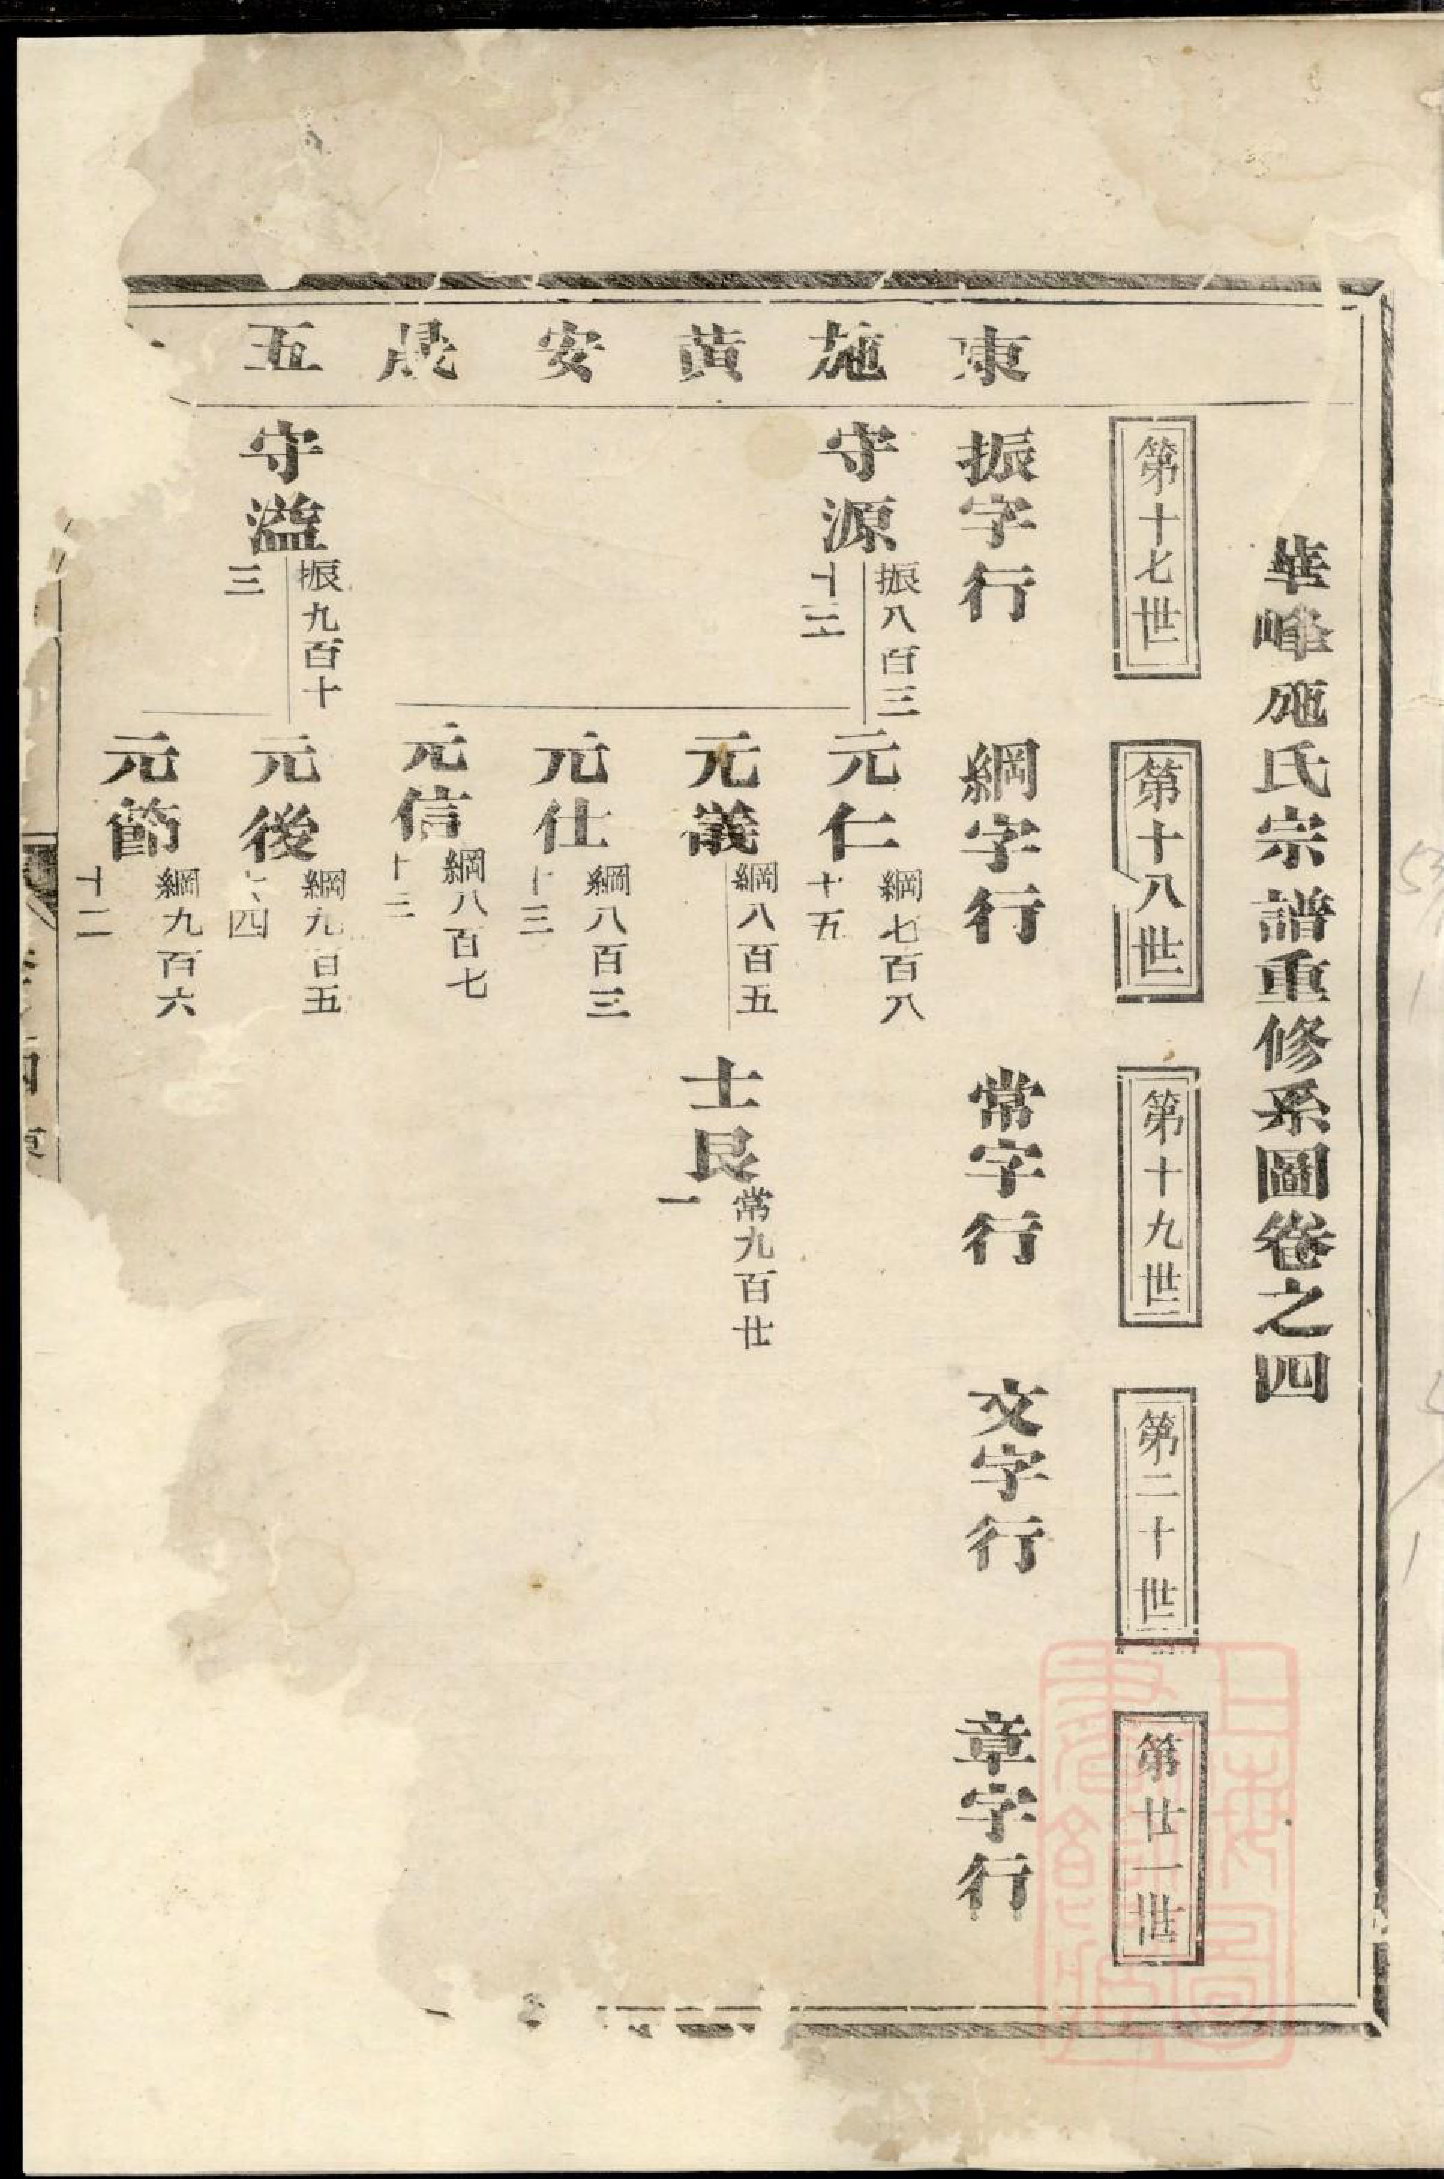 華峰施氏宗譜重修系圖卷之四
第十七世
第十八世
第十九世
第二十世
第廿一世
東施黄安晟五
振字行
綱字行
常字行
文字行
章字行
守源
振八百三
十三
元仁
綱七百八
十五
元義
綱八百五
士良
常九百廿
一
元仕
綱八百三
十三
元信
綱八百七
十三
守溢
振九百十
三
元後
綱九百五
十四
元節
綱九百六
十二